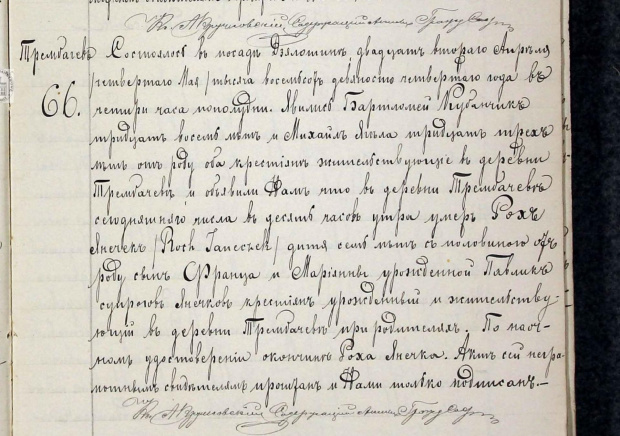 Трембачевъ
66.
Состоялось въ посадѣ Дзялошинѣ двадцать втораго Апрѣля
/четвертаго Мая/ тысяча восемьсотъ девяносто четвертаго года въ
четыри часа пополудни. Явились Бартломей Кубанчикъ
тридцать восемь лѣтъ и Михаилъ тридцать трехъ
лѣтъ отъ роду оба крестьяне жительствующіе въ деревни
Трембачевъ и объявили Намъ что въ деревни Трембачевѣ
сегодняшняго числа въ десять часовъ утра умеръ Рохъ
Янечекъ /Roch Janeczek/ дитя семь лѣтъ съ половиною отъ
роду сынъ Франца и Маріянны урожденной Павликъ
супруговъ Янечковъ крестьянъ урожденный и жительству-
ющій въ деревни Трембачевѣ при родителяхъ. По наоч-
номъ удостовереніи о кончинѣ Роха Янечка. Актъ сей негра-
мотнымъ свидѣтелямъ прочитанъ и Нами только подписанъ.—